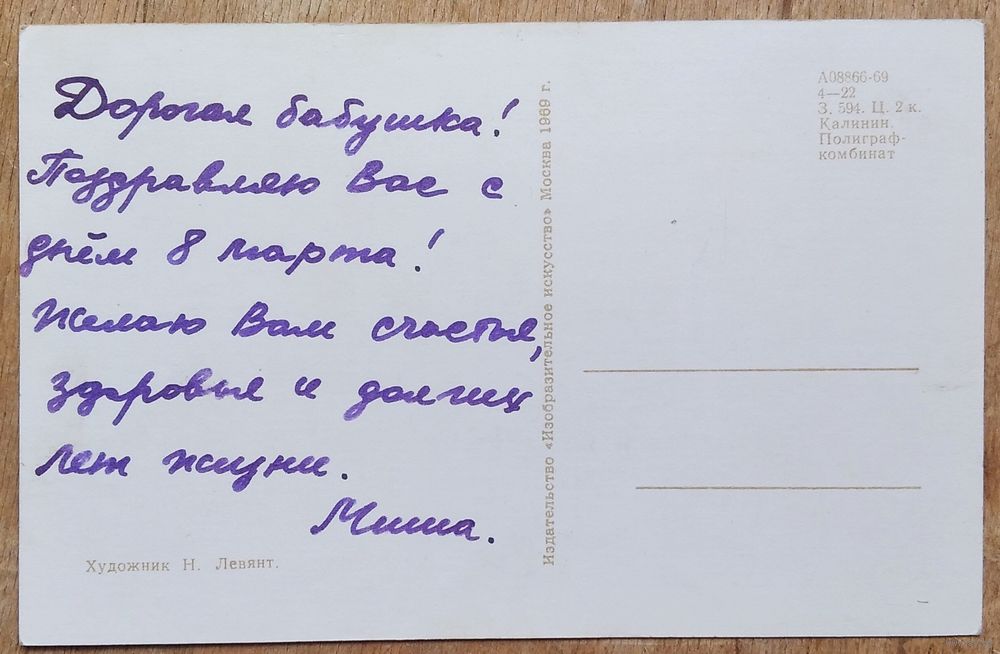 Дорогая бабушка!
Поздравляю Вас с
днём 8 марта!
Желаю Вам счастья,
здоровья и долгих
лет жизни.
Миша.
Художник Н. Левянт.
Издательство «Изобразительное искусство» Москва 1969 г.
А08866-69
4—22
З. 594. Ц. 2 к.
Калинин.
Полиграф-
комбинат